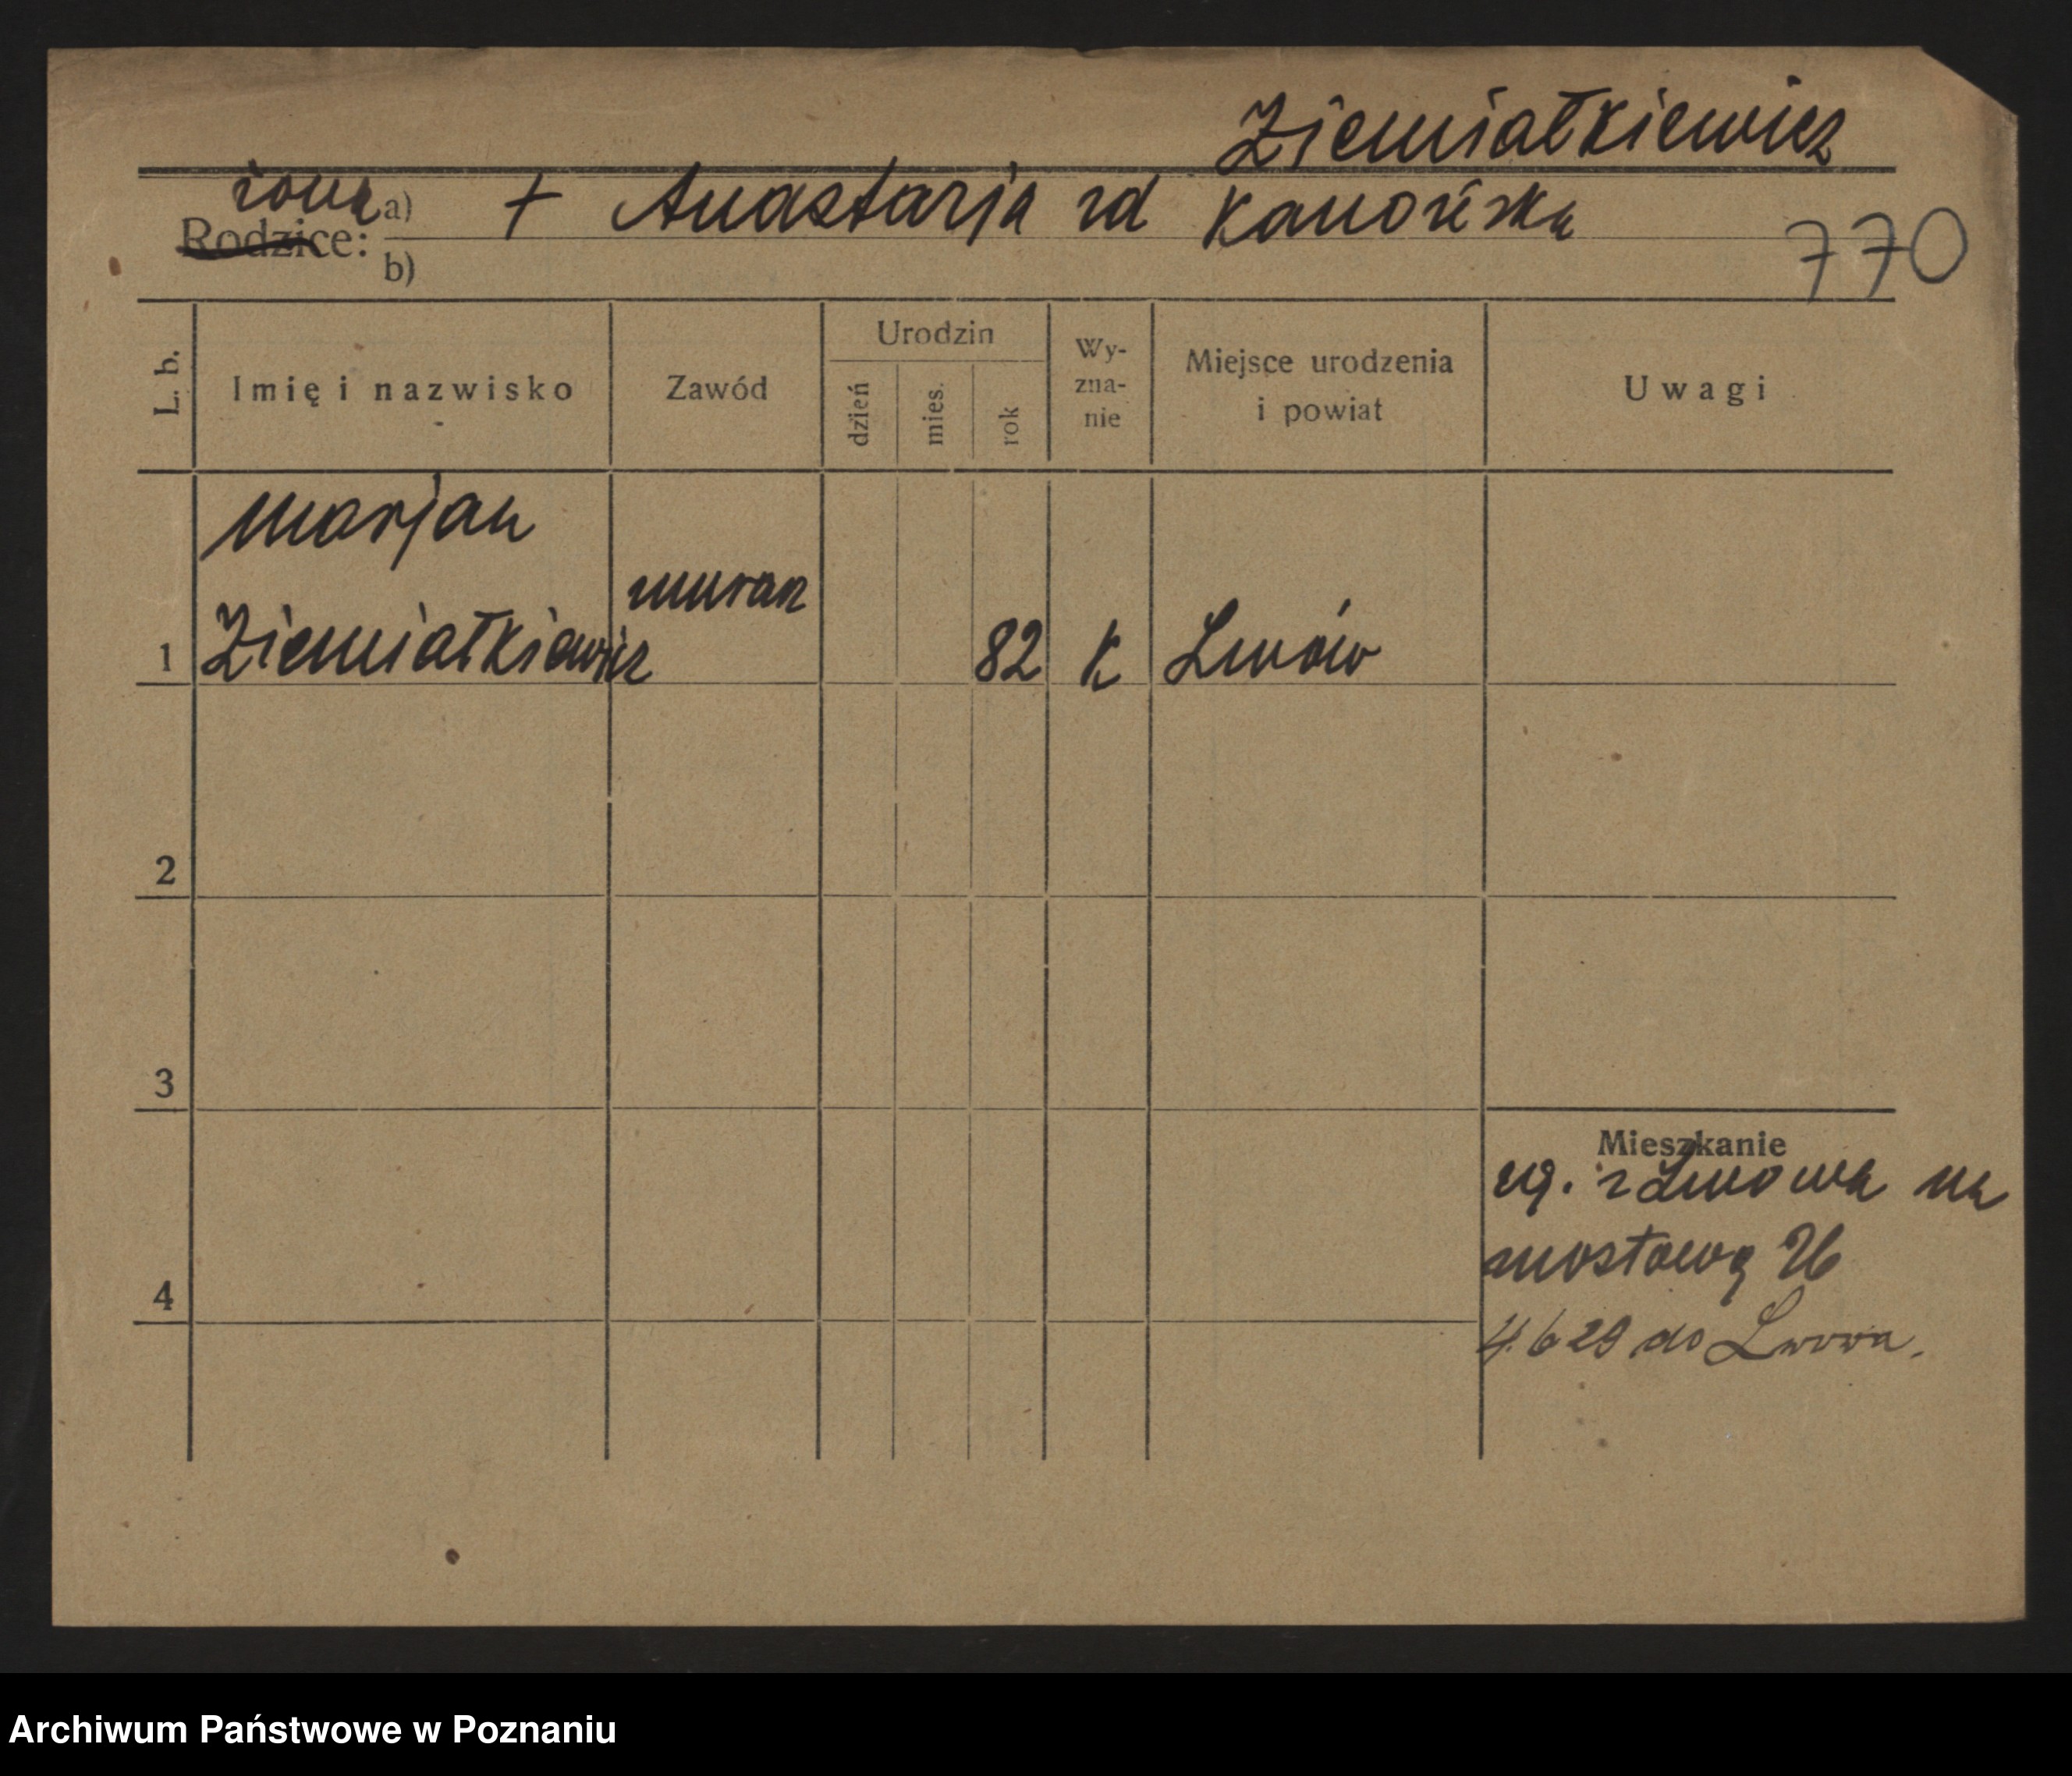 Ziemiałkiewicz
żona
Rodzice: a) + Anastazja zd Kanońska
b)
770
L. b. Imię i nazwisko Zawód Urodzin dzień mies. rok Wy-zna-nie Miejsce urodzenia i powiat Uwagi
Marjan
murarz
1 Ziemiałkiewicz 82 K Lwów
2
3
Mieszkanie
z Lwowa na
mostową 26
4
4.6 29 do Lwowa.
Archiwum Państwowe w Poznaniu